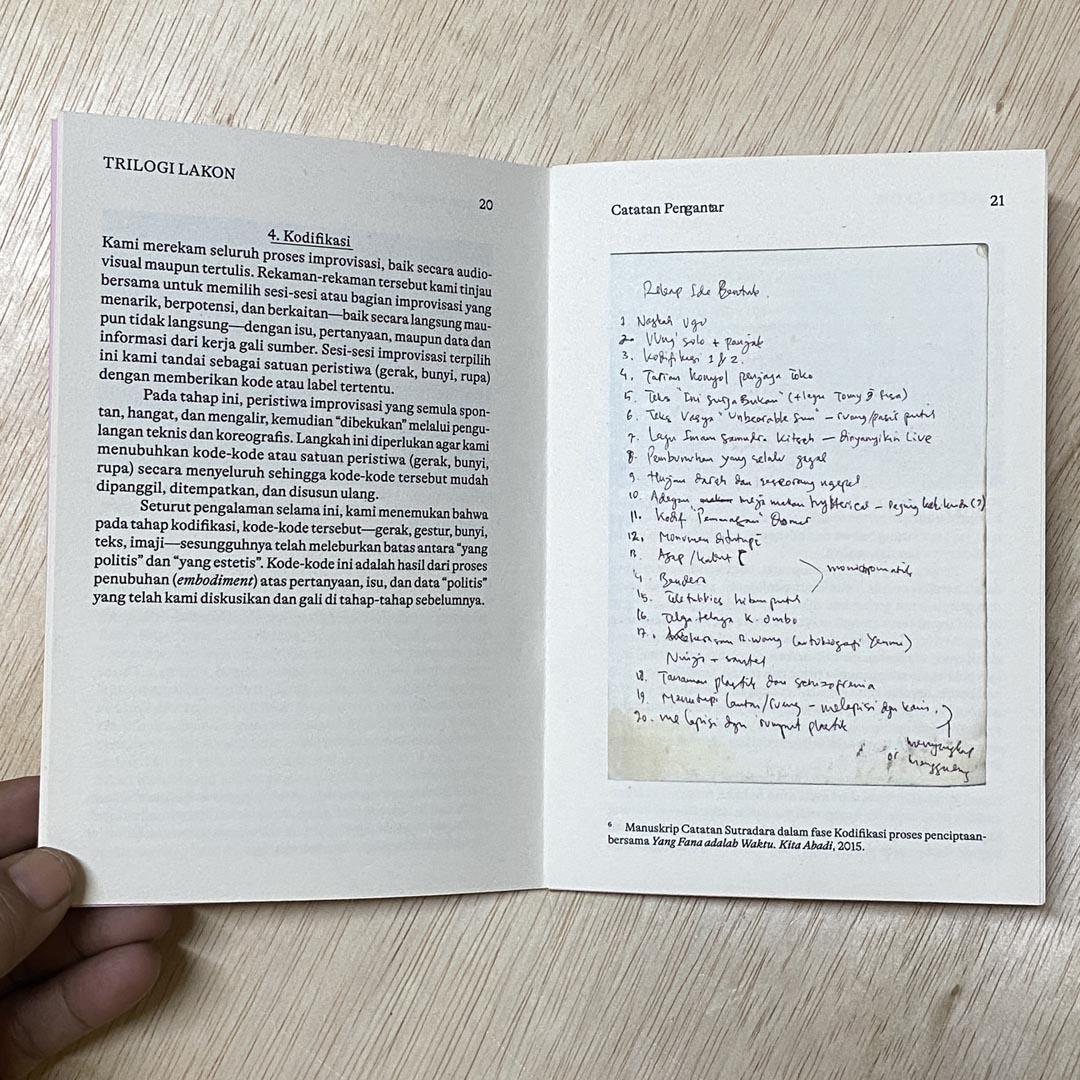 TRILOGI LAKON
20
4. Kodifikasi
Kami merekam seluruh proses improvisasi, baik secara audio-
visual maupun tertulis. Rekaman-rekaman tersebut kami tinjau
bersama untuk memilih sesi-sesi atau bagian improvisasi yang
menarik, berpotensi, dan berkaitan—baik secara langsung mau-
pun tidak langsung—dengan isu, pertanyaan, maupun data dan
informasi dari kerja gali sumber. Sesi-sesi improvisasi terpilih
ini kami tandai sebagai satuan peristiwa (gerak, bunyi, rupa)
dengan memberikan kode atau label tertentu.
Pada tahap ini, peristiwa improvisasi yang semula spon-
tan, hangat, dan mengalir, kemudian “dibekukan” melalui pengu-
langan teknis dan koreografis. Langkah ini diperlukan agar kami
menubuhkan kode-kode atau satuan peristiwa (gerak, bunyi,
rupa) secara menyeluruh sehingga kode-kode tersebut mudah
dipanggil, ditempatkan, dan disusun ulang.
Seturut pengalaman selama ini, kami menemukan bahwa
pada tahap kodifikasi, kode-kode tersebut—gerak, gestur, bunyi,
teks, imaji—sesungguhnya telah meleburkan batas antara “yang
politis” dan “yang estetis”. Kode-kode ini adalah hasil dari proses
penubuhan (embodiment) atas pertanyaan, isu, dan data “politis”
yang telah kami diskusikan dan gali di tahap-tahap sebelumnya.
Catatan Pergantar
21
Ide Bentuk.
1. Naskah Ugo
2. solo +
3. Kodifikasi 1 & 2.
4. Tarian Konyol penjaga toko
5. Teks "Ini Surga Bukan" (+ lagu Tomy
6. Teks Vasya "Unbearable Sun" – ruang/pasir putih
7. Lagu Imam Samudra Kitsch – Dinyanyikan Live
8. Pembunuhan yang selalu gagal
9. Hujan darah dan seseorang ngepel
10. Adegan meja makan hysterical –
11. Kodif
12. Monumen ditutupi
13. Asap/kabut
14. Bendera
monokromatik
15. Teletubbies hitam putih
16. K. ombo
17. R. wang (autobiografi Yennu)
18. Tanaman plastik dan schizofrenia
19. Menutupi lantai/ruang – melapisi dgn kain.
20. melapisi dgn rumput plastik
menyingkap
or
6 Manuskrip Catatan Sutradara dalam fase Kodifikasi proses penciptaan-
bersama Yang Fana adalah Waktu. Kita Abadi, 2015.